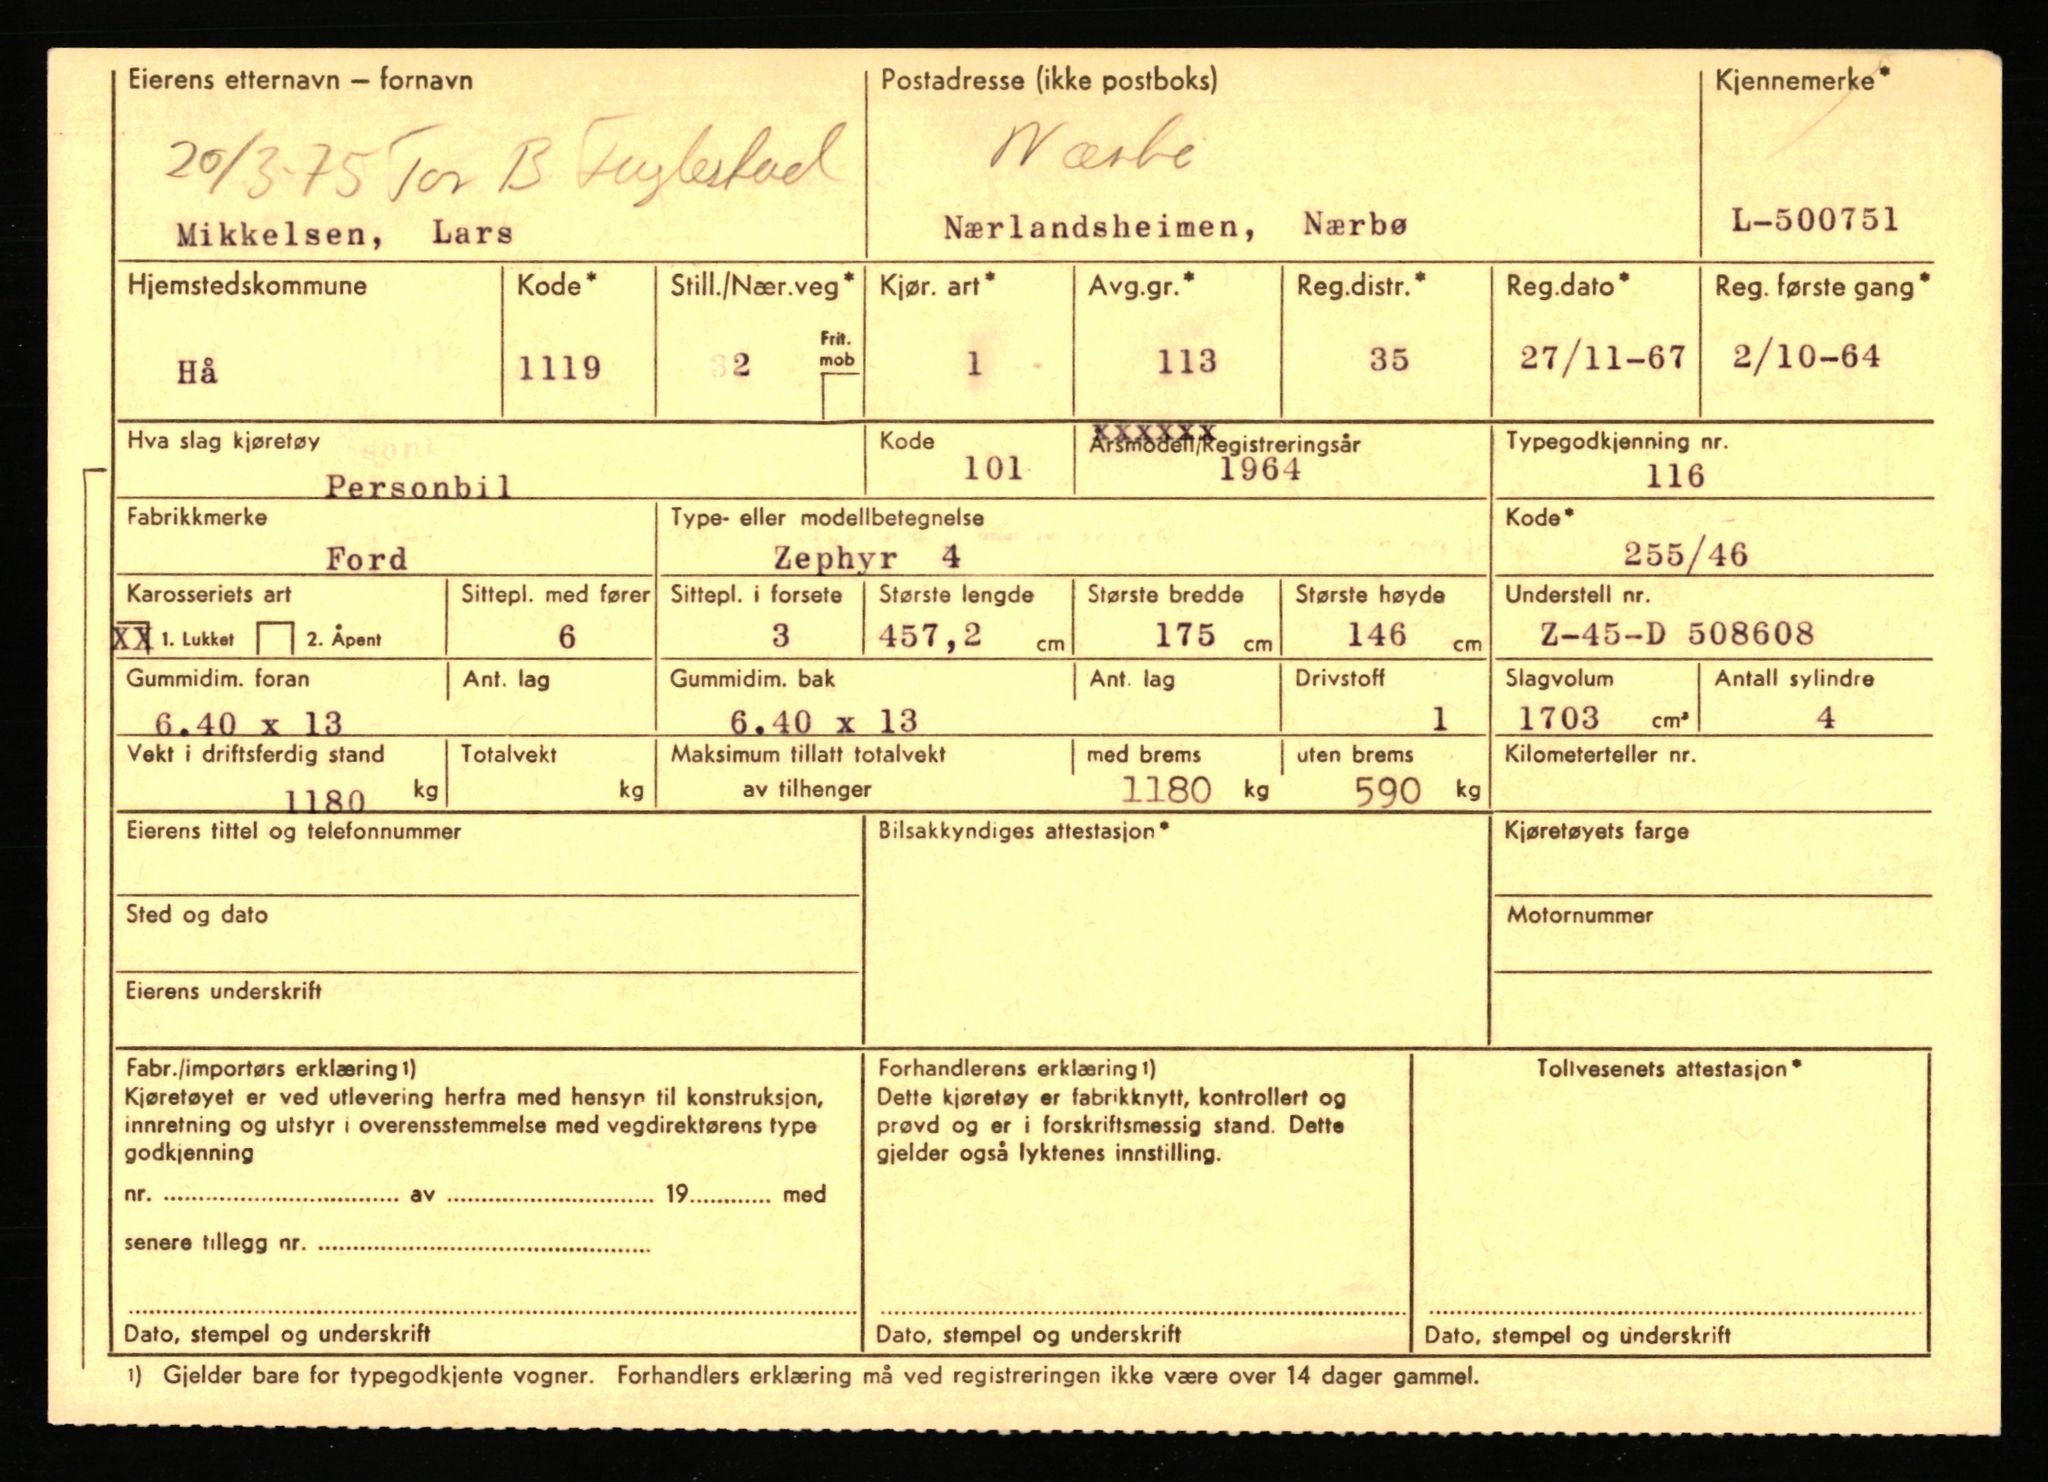 Eierens etternavn – fornavn Postadresse (ikke postboks) Kjennemerke*
20/3-75 Tor B Fuglestad Nærbø
Mikkelsen, Lars Nærlandsheimen, Nærbø L-500751
Hjemstedskommune Kode* Still./Nær.veg* Kjør. art* Avg.gr.* Reg.distr.* Reg.dato* Reg. første gang*
Frit.
mob
Hå 1119 32 1 113 35 27/11-67 2/10-64
Hva slag kjøretøy Kode Årsmodell/Registreringsår Typegodkjenning nr.
xxxxxx
Personbil 101 1964 116
Fabrikkmerke Type- eller modellbetegnelse Kode*
Ford Zephyr 4 255/46
Karosseriets art Sittepl. med fører Sittepl. i forsete Største lengde Største bredde Største høyde Understell nr.
XX 1. Lukket 2. Åpent 6 3 457,2 cm 175 cm 146 cm Z-45-D 508608
Gummidim. foran Ant. lag Gummidim. bak Ant. lag Drivstoff Slagvolum Antall sylindre
6.40 x 13 6.40 x 13 1 1703 cm³ 4
Vekt i driftsferdig stand Totalvekt Maksimum tillatt totalvekt med brems uten brems Kilometerteller nr.
1180 kg kg av tilhenger 1180 kg 590 kg
Eierens tittel og telefonnummer Bilsakkyndiges attestasjon* Kjøretøyets farge
Sted og dato Motornummer
Eierens underskrift
Fabr./importørs erklæring 1) Forhandlerens erklæring 1) Tollvesenets attestasjon*
Kjøretøyet er ved utlevering herfra med hensyn til konstruksjon, Dette kjøretøy er fabrikknytt, kontrollert og
innretning og utstyr i overensstemmelse med vegdirektørens type prøvd og er i forskriftsmessig stand. Dette
godkjenning gjelder også lyktenes innstilling.
nr. .......... av .......... 19.......... med
senere tillegg nr. ..........
Dato, stempel og underskrift Dato, stempel og underskrift Dato, stempel og underskrift
1) Gjelder bare for typegodkjente vogner. Forhandlers erklæring må ved registreringen ikke være over 14 dager gammel.